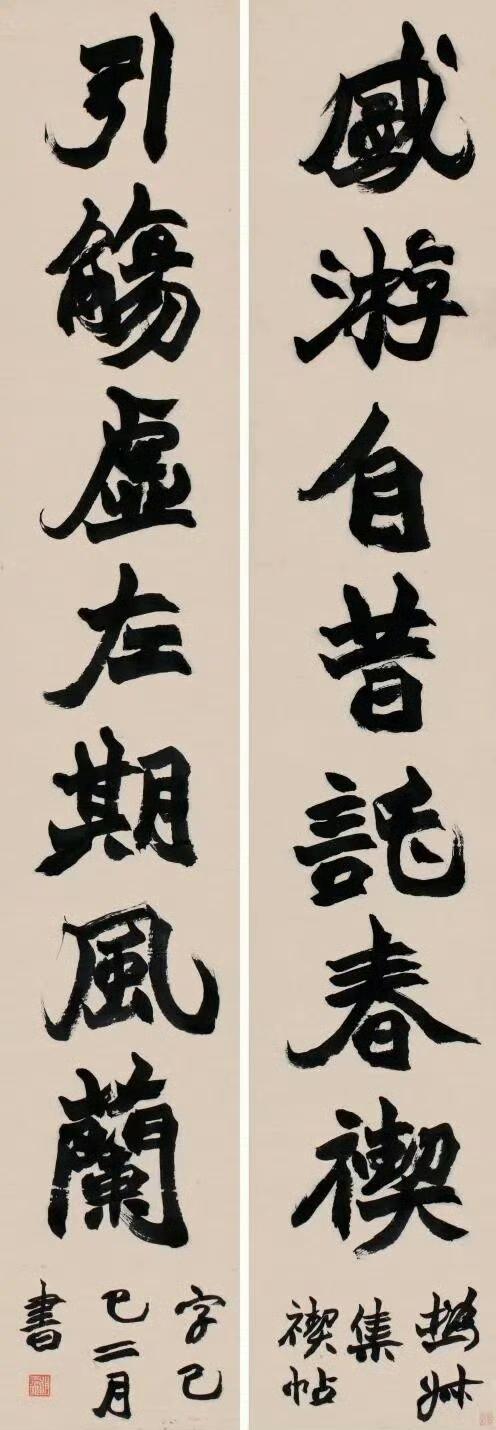 盛游自昔託春禊
撝叔
集
禊帖
引觴虛左期風蘭
字己
巳二月
書